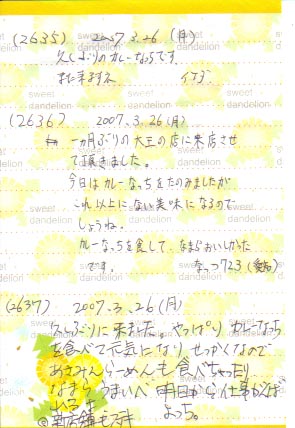 (2635) 2007.3.26 (月)
久しぶりのカレーなっちです。
また来ますネ
(2636) 2007.3.26 (月)
一ヵ月ぶりの大王の店に来店させ
て頂きました。
今日はカレーなっちをたのみましたが
これ以上にない美味になるので
しょうね。
カレーなっちを食して、なまらおいしかった
です。 なっつ723
(2637) 2007.3.26 (月)
久しぶりに来ました。やっぱり カレーなっち
を食べて元気になり せっかくなので
あさみんらーめんも食べちゃったり
なまら うまいべ 明日から仕事がんば
よっち。
sweet dandelion